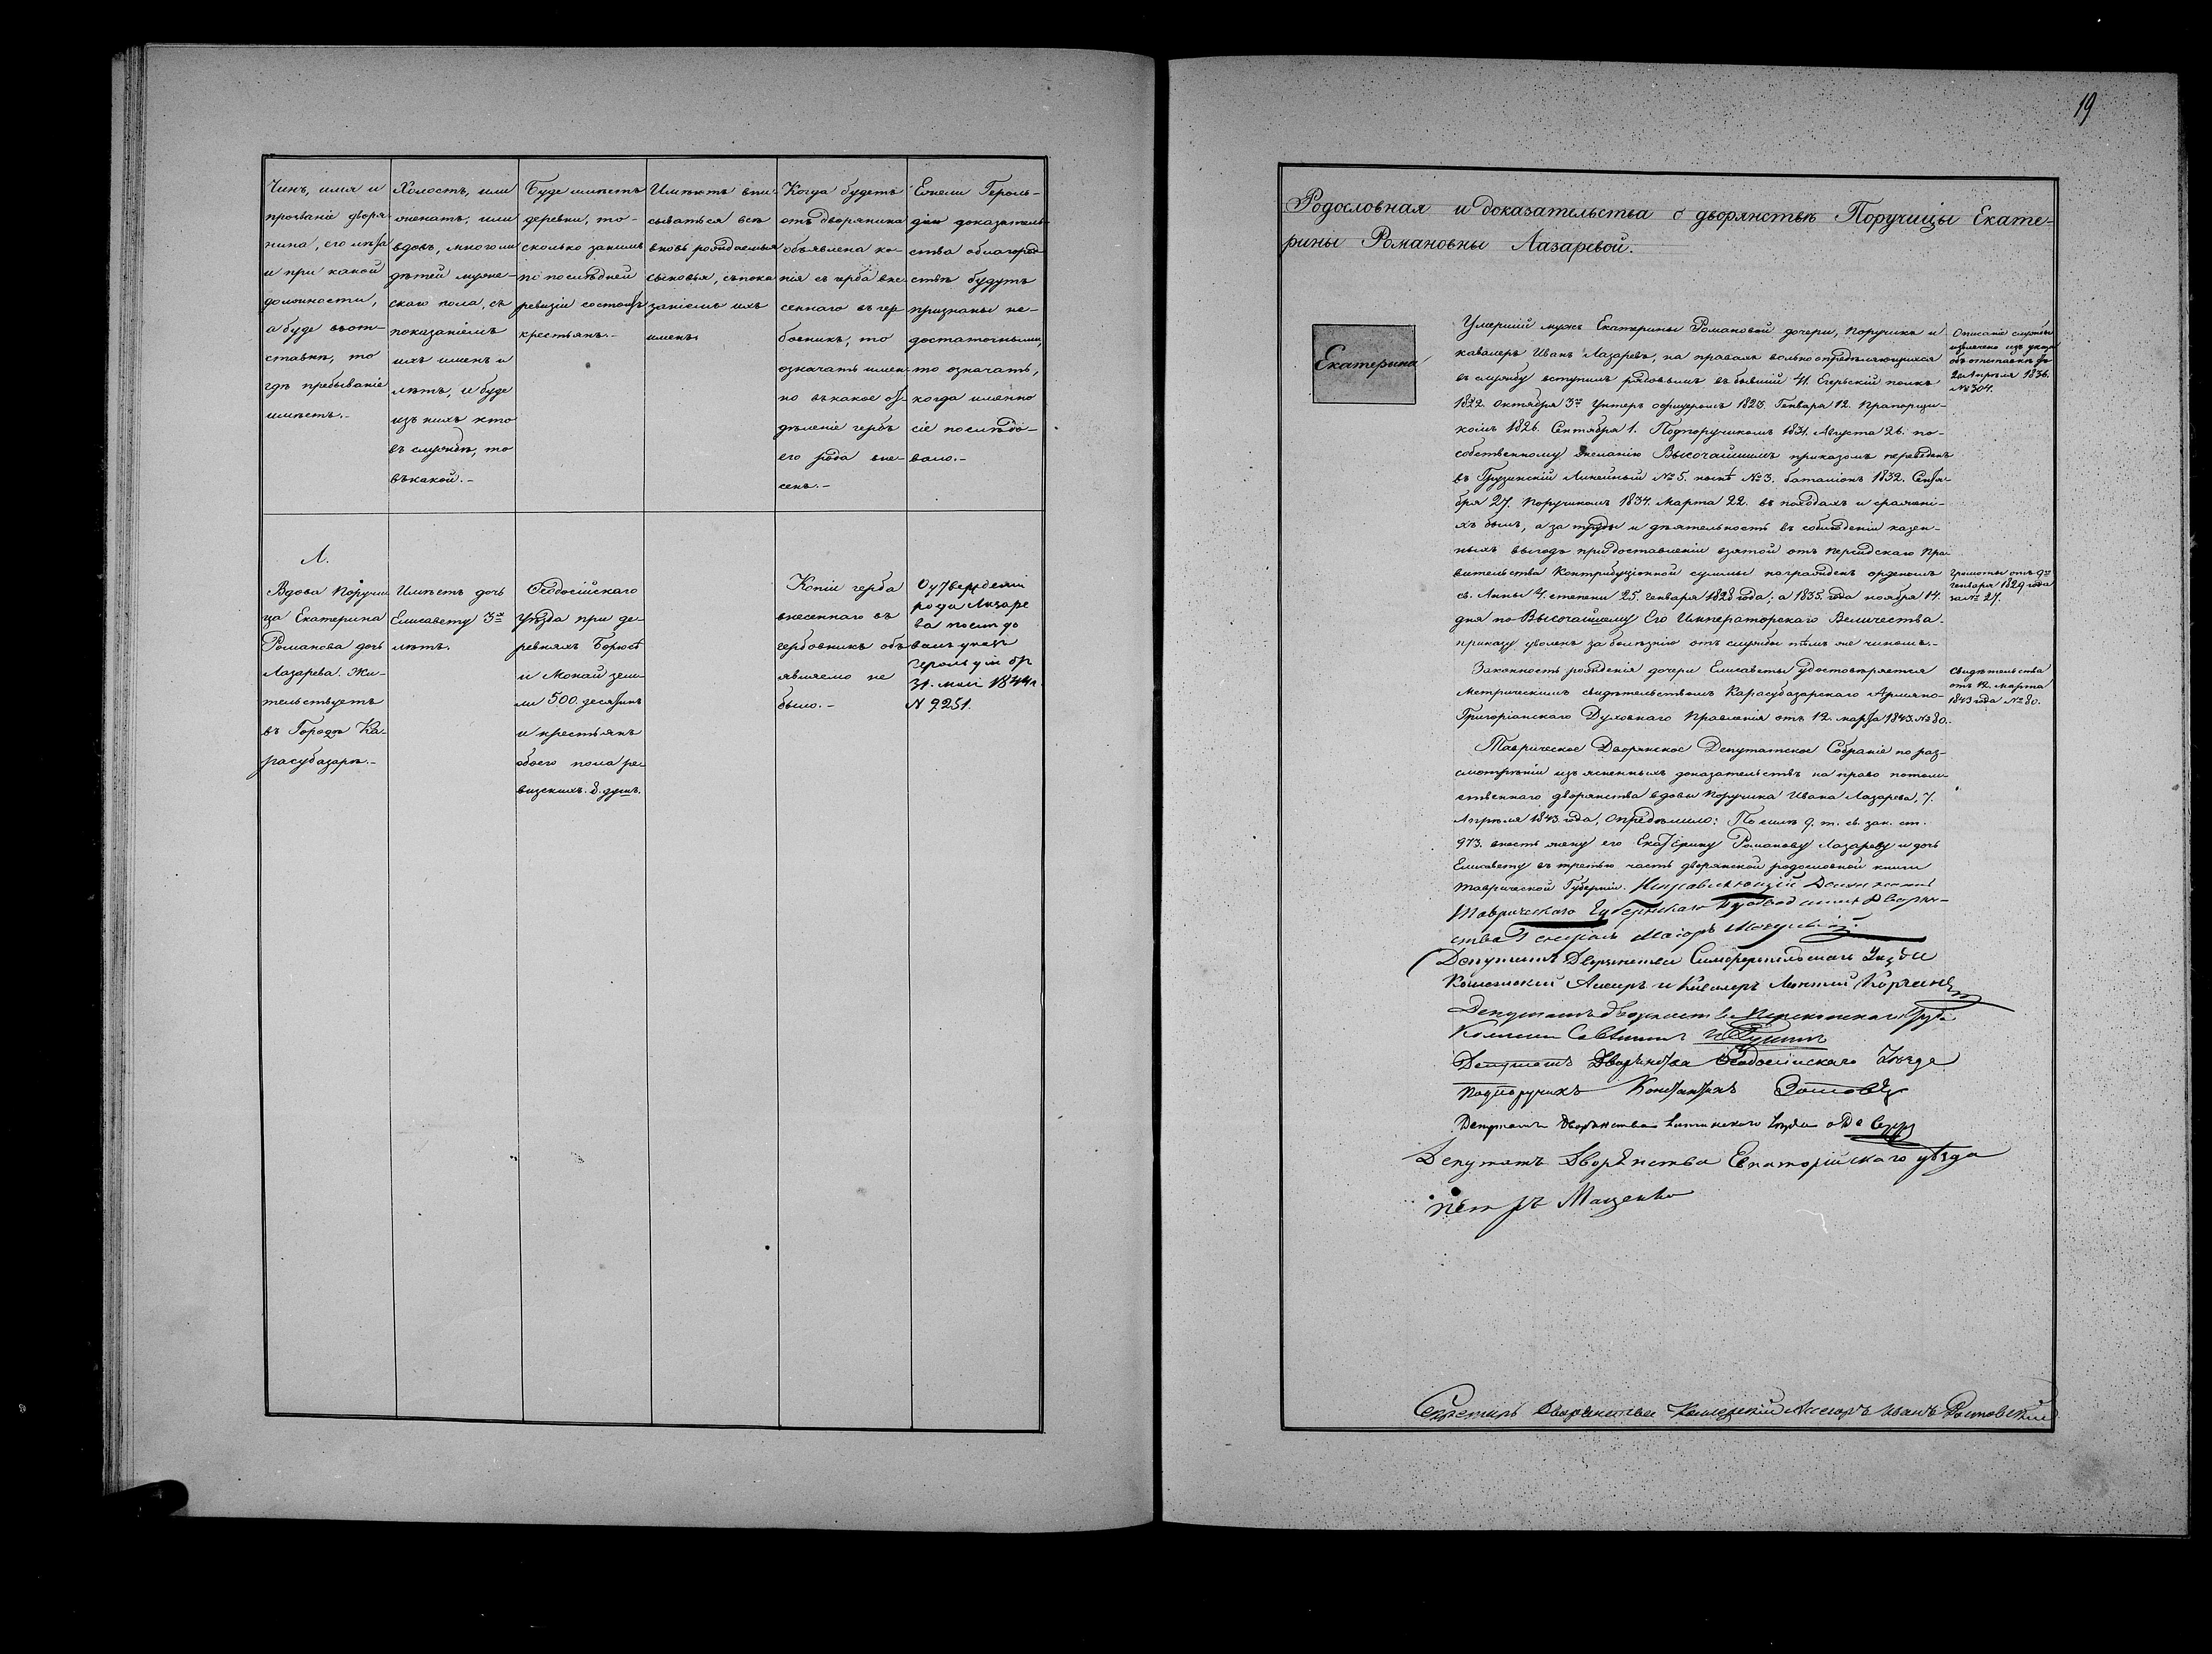 Чинъ, имя и
прозваніе дворя-
нина, его лѣта
и при какой
должности,
а буде въ от-
ставкѣ, то
гдѣ пребываніе
имѣетъ.-
Холостъ, или
женатъ, или
вдовъ, много ли
дѣтей муже-
скаго пола, съ
показаніемъ
ихъ именъ и
лѣтъ, и буде
изъ нихъ кто
въ службѣ, то
въ какой.-
Буде имѣетъ
деревни, то-
сколько за нимъ
по послѣдней
ревизіи состоитъ
крестьянъ.-
Имѣютъ впи-
сываться всѣ
вновь рождаемыя
сыновья, съ пока
заніемъ ихъ
именъ.
Когда будетъ
отъ дворянина
объявлена ко-
пія съ герба вне-
сеннаго въ гер-
бовникъ, то
означать имен-
но въ какое от-
дѣленіе гербъ
его рода вне-
сенъ.-
Ежели Героль-
діею доказатель-
ства о благород-
ствѣ будутъ
признаны не-
достаточными,
то означать,
когда именно
сіе послѣдо-
вало.-
Л.
Вдова Поручи
ца Екатерина
Романова дочь
Лазарева. Жи-
тельствуетъ
въ Городѣ Ка-
расубазарѣ.-
Имѣетъ дочь
Елисавету 3хъ
лѣтъ.
Ѳеодосійскаго
Уѣзда при де-
ревняхъ
и Монай зем-
ли 500. десятинъ
и крестьянъ
обоего пола ре-
визскихъ. 8. душъ.
Копіи герба
внесеннаго въ
гербовникъ объ
являемо не
было.-
О утвержденіи
рода Лазаре
ва послѣдо
валъ указъ
Герольдіи отъ
31. мая 1844 г.
N 9251.
19
Родословная и доказательства о дворянствѣ Поручицы Екате-
рины Романовны Лазаревой.
Екатерина
Умершій мужъ Екатерины Романовой дочери, Поручикъ и
кавалеръ Иванъ Лазаревъ, на правахъ вольноопредѣляющихся
въ службу вступилъ рядовымъ въ бывшій 41. Егерскій полкъ
1822. октября 3го Унтеръ офицеромъ 1823. Генваря 12. Прапорщи-
комъ 1826. Сентября 1. Подпоручикомъ 1831. Августа 26. по-
собственному желанію Высочайшимъ приказомъ переведенъ
въ Грузинскій Линейный №5. нынѣ №3. баталіонъ 1832. Сентя-
бря 27. Поручикомъ 1834. Марта 22. въ походахъ и сражені-
яхъ былъ, а за труды и дѣятельность въ соблюденіи казен-
ныхъ выгодъ при доставленіи взятой отъ Персидскаго Пра-
вительства Контрибуціонной суммы награжденъ орденомъ
св. Анны 4. степени 25. Генваря 1828 года; а 1835. года ноября 14.
дня по Высочайшему Его Императорскаго Величества
приказу уволенъ за болѣзнію отъ службы тѣмъ же чиномъ.-
Законность рожденія дочери Елисаветы удостовѣряется
Метрическимъ свидѣтельствомъ Карасубазарскаго Армяно-
Григоріанскаго Духовнаго Правленія отъ 12. марта 1843. №80.
Таврическое Дворянское Депутатское Собраніе по раз-
смотрѣніи изъясненныхъ доказательствъ на право потом-
ственнаго дворянства вдовы Поручика Ивана Лазарева, 7.
Апрѣля 1843. года, опредѣлило: По силѣ 9. т. св. зак. ст.
973. внесть жену его Екатерину Романову Лазареву и дочь
Елисавету въ третью часть дворянской родословной книги
Таврической Губерніи. Исправляющій Должность
Таврическаго Губернскаго Предводителя Дворян-
ства Генералъ Маіоръ
Депутатъ Дворянства Симферопольскаго Уѣзда
и Кавалеръ
Депутатъ дворянства Перекопскаго Уѣзда
Депутатъ Дворянства Ѳеодосійскаго Уѣзда
Подпоручикъ Константинъ
Депутатъ Дворянства Ялтинскаго Уѣзда
Депутатъ Дворянства Евпаторійскаго уѣзда
Петръ Маценко
Секретарь Дворянства Коллежскій Ассесоръ Иванъ
Описаніе службы
извлечено изъ указа
объ отставкѣ
2го Апрѣля 1836.
№304.
Грамоты отъ 9го
Генваря 1829 года
за № 27.
Свидѣтельства
отъ 12. марта
1843 года №80.